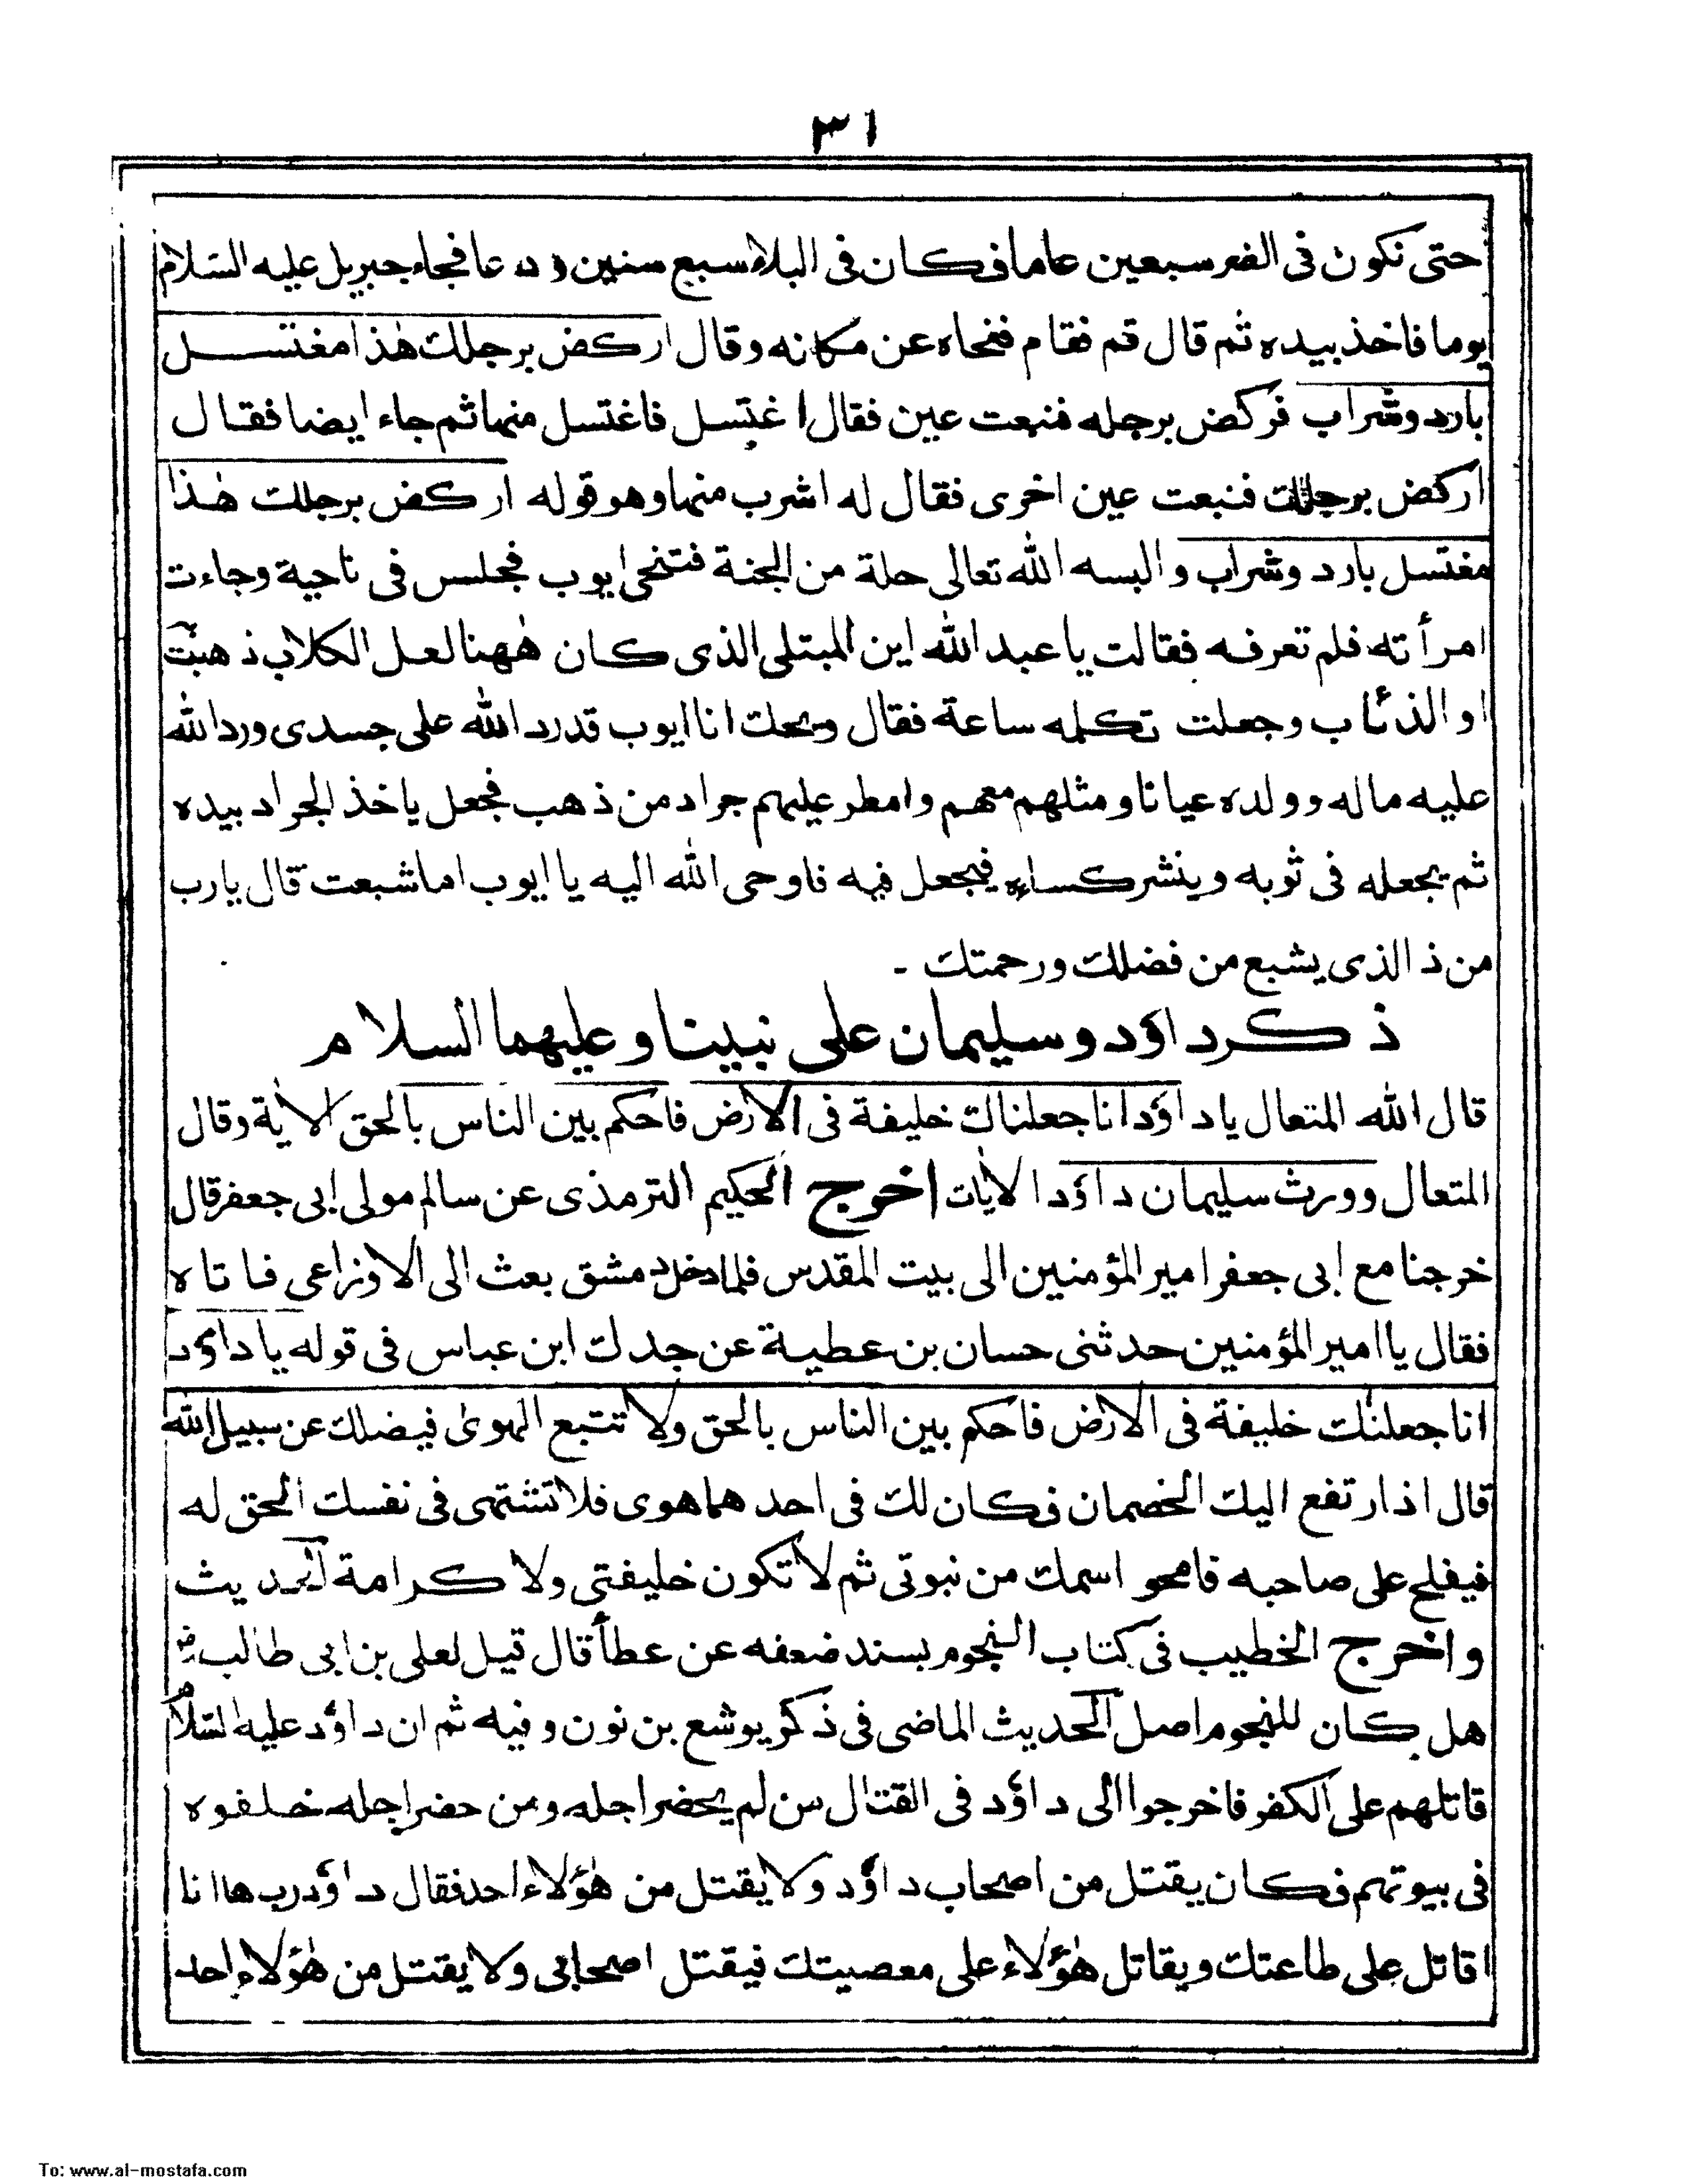 ٣١
حتى نكون فى الضر سبعين عاما فكان فى البلاء سبع سنين ودعا فجاء جبريل عليه السلام
يوما فاخذ بيده ثم قال قم فقام فنحاه عن مكانه وقال اركض برجلك هٰذا مغتسل
بارد وشراب فركض برجله فنبعت عين فقال اغتسل فاغتسل منها ثم جاء ايضا فقال
اركض برجلك فنبعت عين اخرى فقال له اشرب منها وهو قوله اركض برجلك هٰذا
مغتسل بارد وشراب والبسه الله تعالى حلة من الجنة فتنحى ايوب فجلس فى ناحية وجاءت
امرأته فلم تعرفه فقالت يا عبد الله اين المبتلى الذى كان هٰهنا لعل الكلاب ذهبت
او الذئاب وجعلت تكلمه ساعة فقال ويحك انا ايوب قد رد الله على جسدى ورد الله
عليه ماله وولده عيانا ومثلهم معهم وامطر عليهم جراد من ذهب فجعل ياخذ الجراد بيده
ثم يجعله فى ثوبه وينشر كساءه فيجعل فيه فاوحى الله اليه يا ايوب اما شبعت قال يارب
من ذ الذى يشبع من فضلك ورحمتك -
ذكر داؤد وسليمان على نبينا وعليهما السلام
قال الله المتعال يا داؤد انا جعلناك خليفة فى الارض فاحكم بين الناس بالحق الاٰية وقال
المتعال وورث سليمان داؤد الاٰيات اخرج الحكيم الترمذى عن سالم مولى ابى جعفر قال
خرجنا مع ابى جعفر امير المؤمنين الى بيت المقدس فلما دخل دمشق بعث الى الاوزاعى فاتاه
فقال يا امير المؤمنين حدثنى حسان بن عطية عن جدك ابن عباس فى قوله يا داؤد
انا جعلنٰك خليفة فى الارض فاحكم بين الناس بالحق ولا تتبع الهوىٰ فيضلك عن سبيل الله
قال اذا رتفع اليك الخصمان فكان لك فى احدهما هوى فلا تشتهى فى نفسك الحق له
فيفلح على صاحبه فامحو اسمك من نبوتى ثم لا تكون خليفتى ولا كرامة الحديث
واخرج الخطيب فى كتاب النجوم بسند ضعفه عن عطأ قال قيل لعلى بن ابى طالب رض
هل كان للنجوم اصل الحديث الماضى فى ذكر يوشع بن نون وفيه ثم ان داؤد عليه السلام
قاتلهم على الكفر فاخرجوا الى داؤد فى القتال من لم يحضر اجله ومن حضر اجله خلفوه
فى بيوتهم فكان يقتل من اصحاب داؤد ولا يقتل من هٰؤلاء احد فقال داؤد رب ها انا
اقاتل على طاعتك ويقاتل هٰؤلاء على معصيتك فيقتل اصحابى ولا يقتل من هٰؤلاء احد
To: www.al-mostafa.com